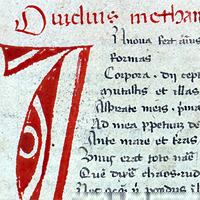 Ouidius metham
N noua fert aĩus
formas
Corpora . dii cept
mutastis et illas
Aspirate meis . pͥma
Ad mea ꝑpetuũ de
Ante mare et tras
Unus erat toto naẽ
Quẽ dixẽ chaos . rud
Nec n̄ pondus